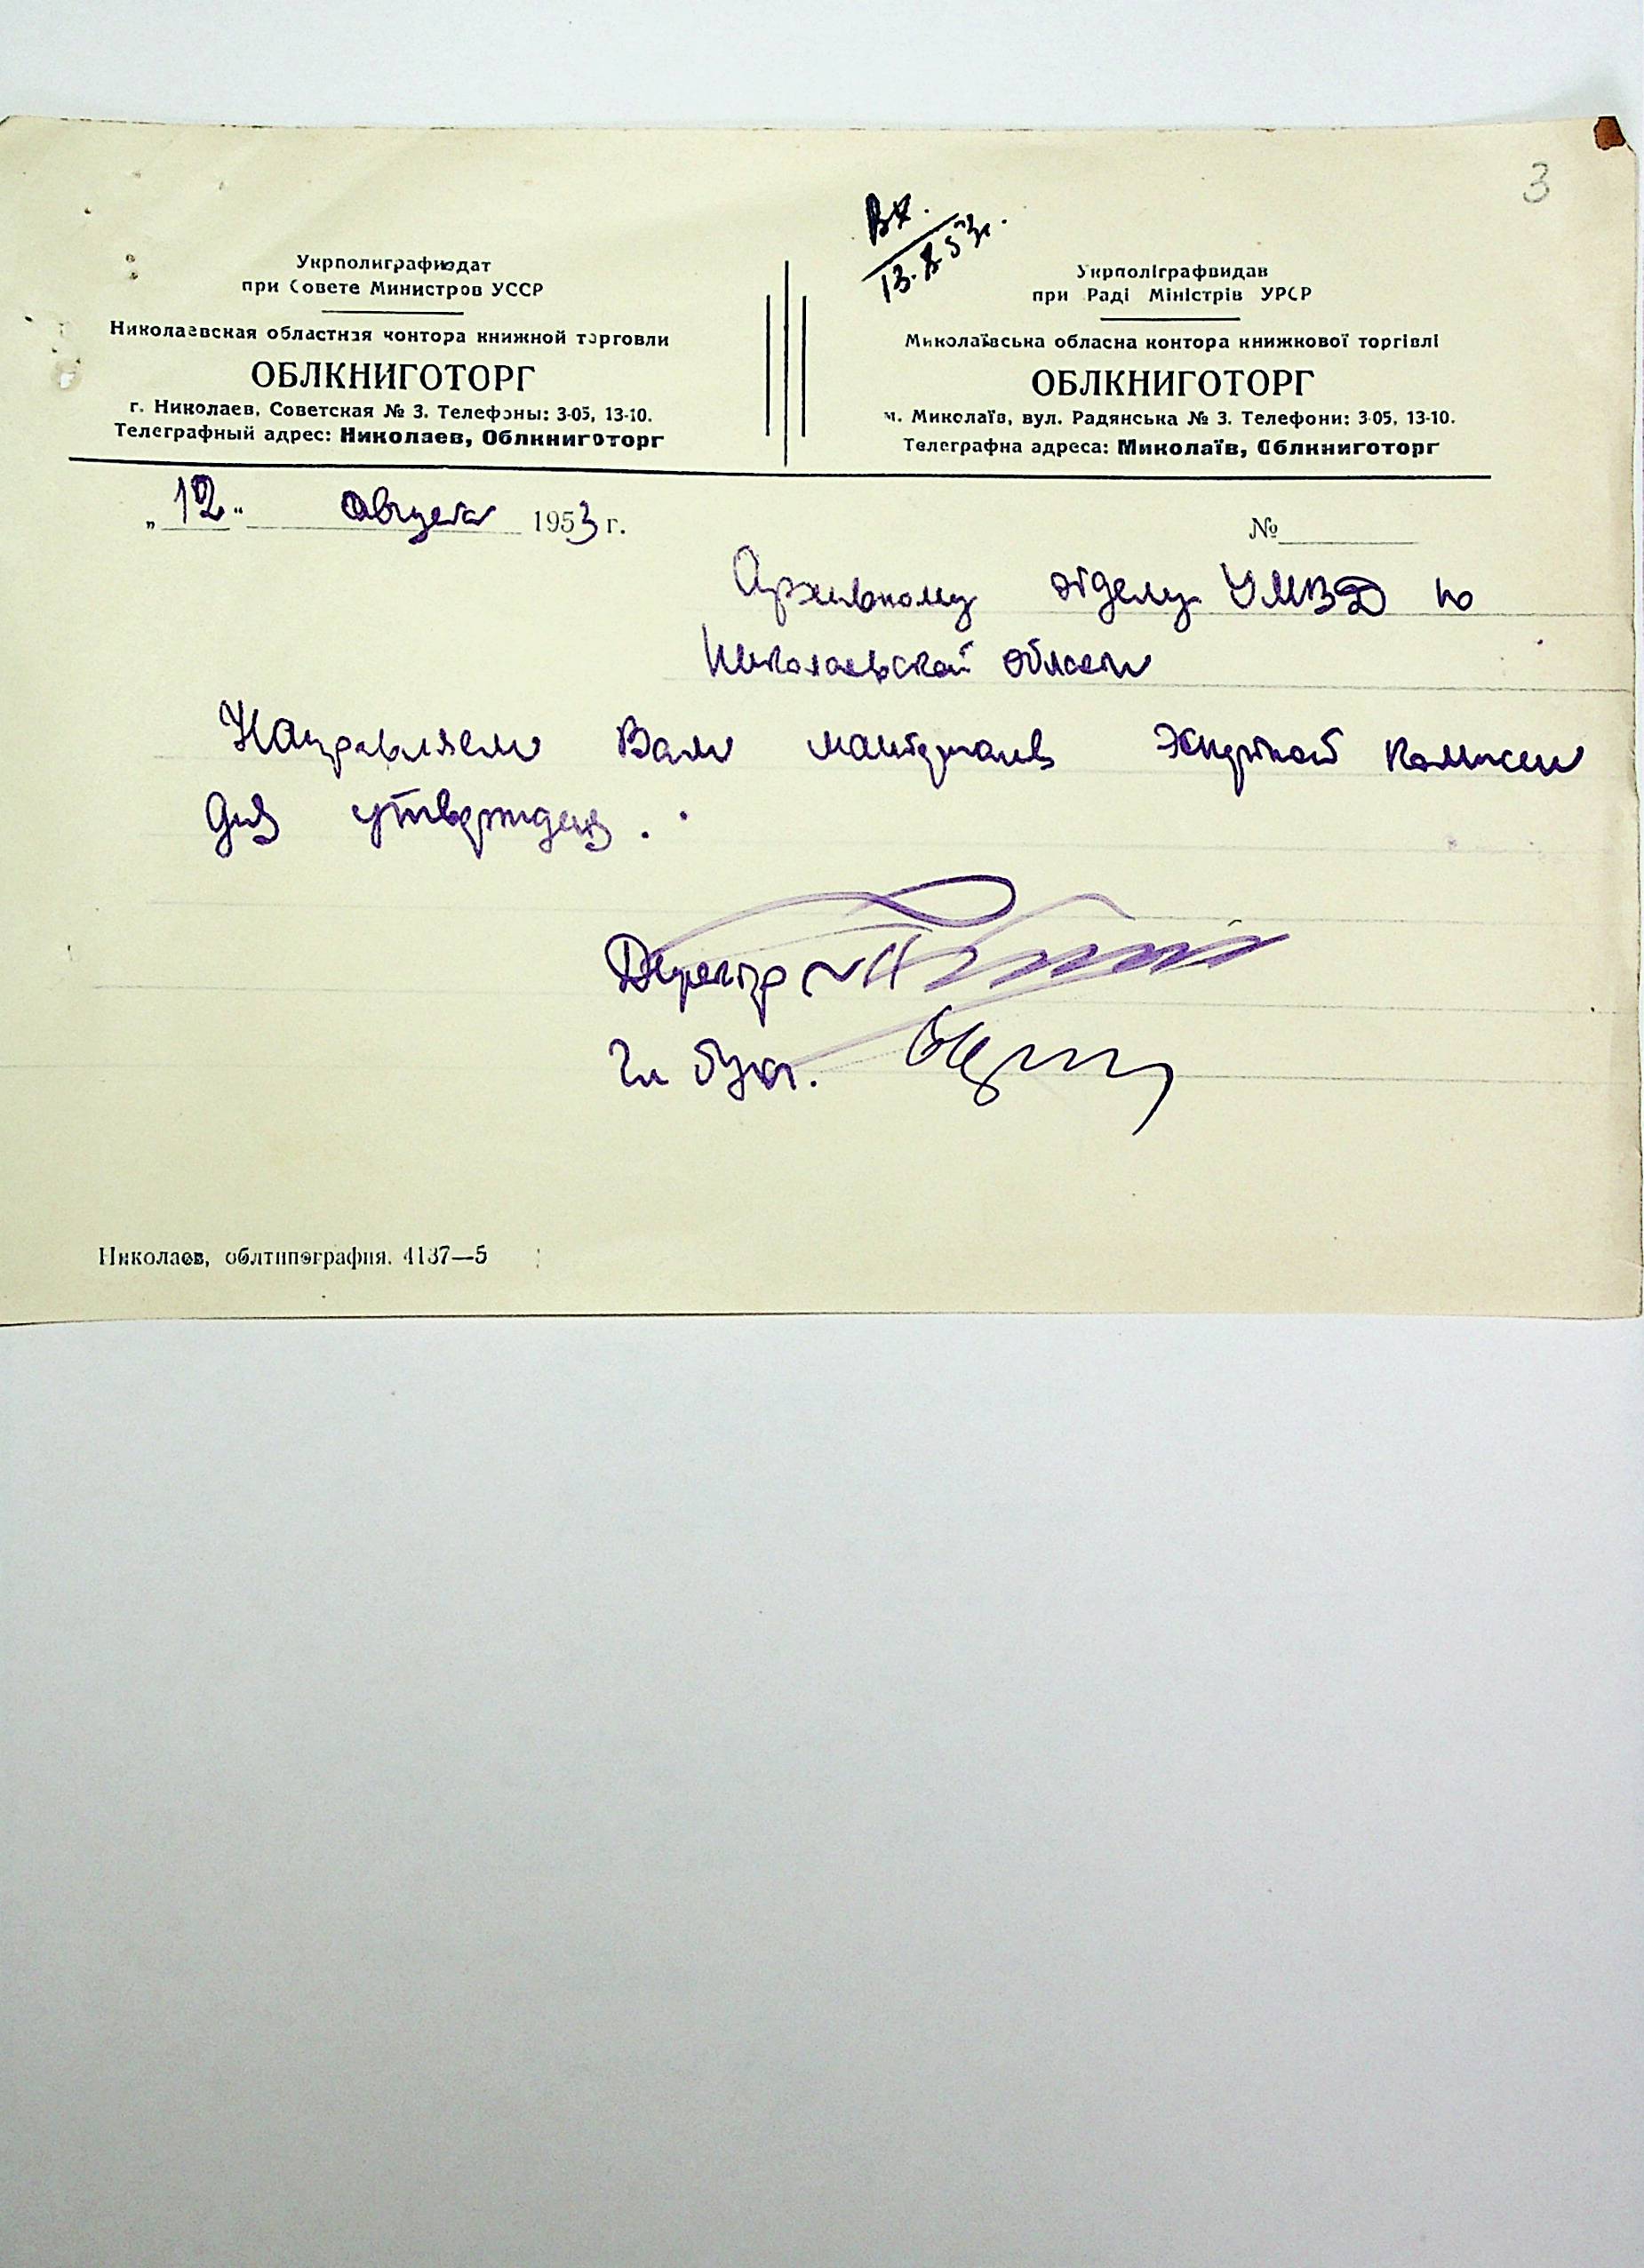 3
Вх.
13.8.53г.
Укрполиграфиздат
при Совете Министров УССР
Николаевская областная контора книжной торговли
ОБЛКНИГОТОРГ
г. Николаев, Советская № 3. Телефоны: 3-05, 13-10.
Телеграфный адрес: Николаев, Облкниготорг
Укрполіграфвидав
при Раді Міністрів УРСР
Миколаївська обласна контора книжкової торгівлі
ОБЛКНИГОТОРГ
м. Миколаїв, вул. Радянська № 3. Телефони: 3-05, 13-10.
Телеграфна адреса: Миколаїв, Облкниготорг
„12“ августа 1953 г.
№
Архивному отделу УМВД по
Николаевской области
Направляем Вам материалы экспертной комиссии
для утверждения.
Директор
Гл бухг.
Николаев, облтипография. 4137—5